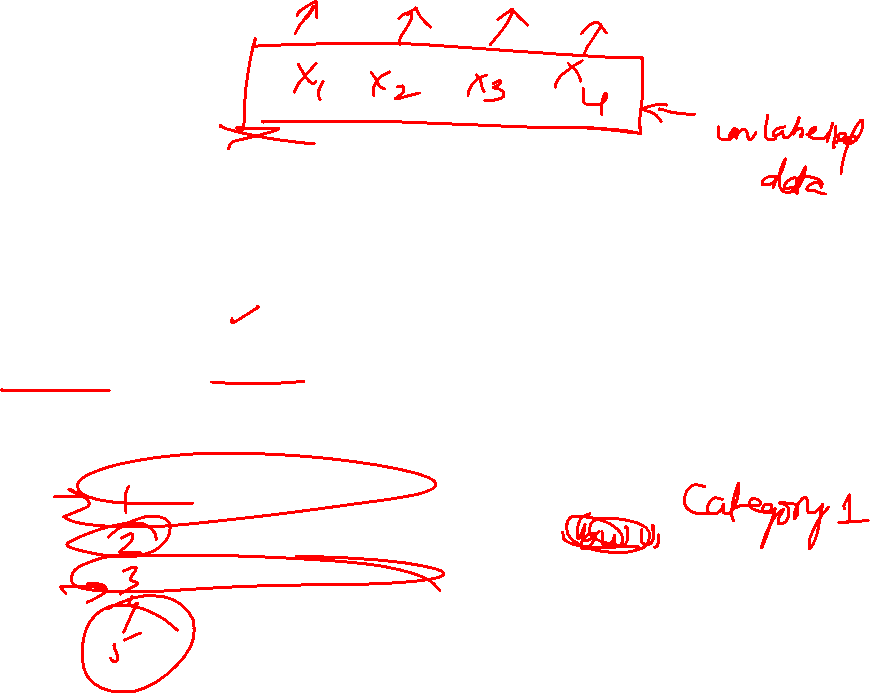 X1 X2 X3 X4
unlabelled
data
1
2
Category 1
3
4
5